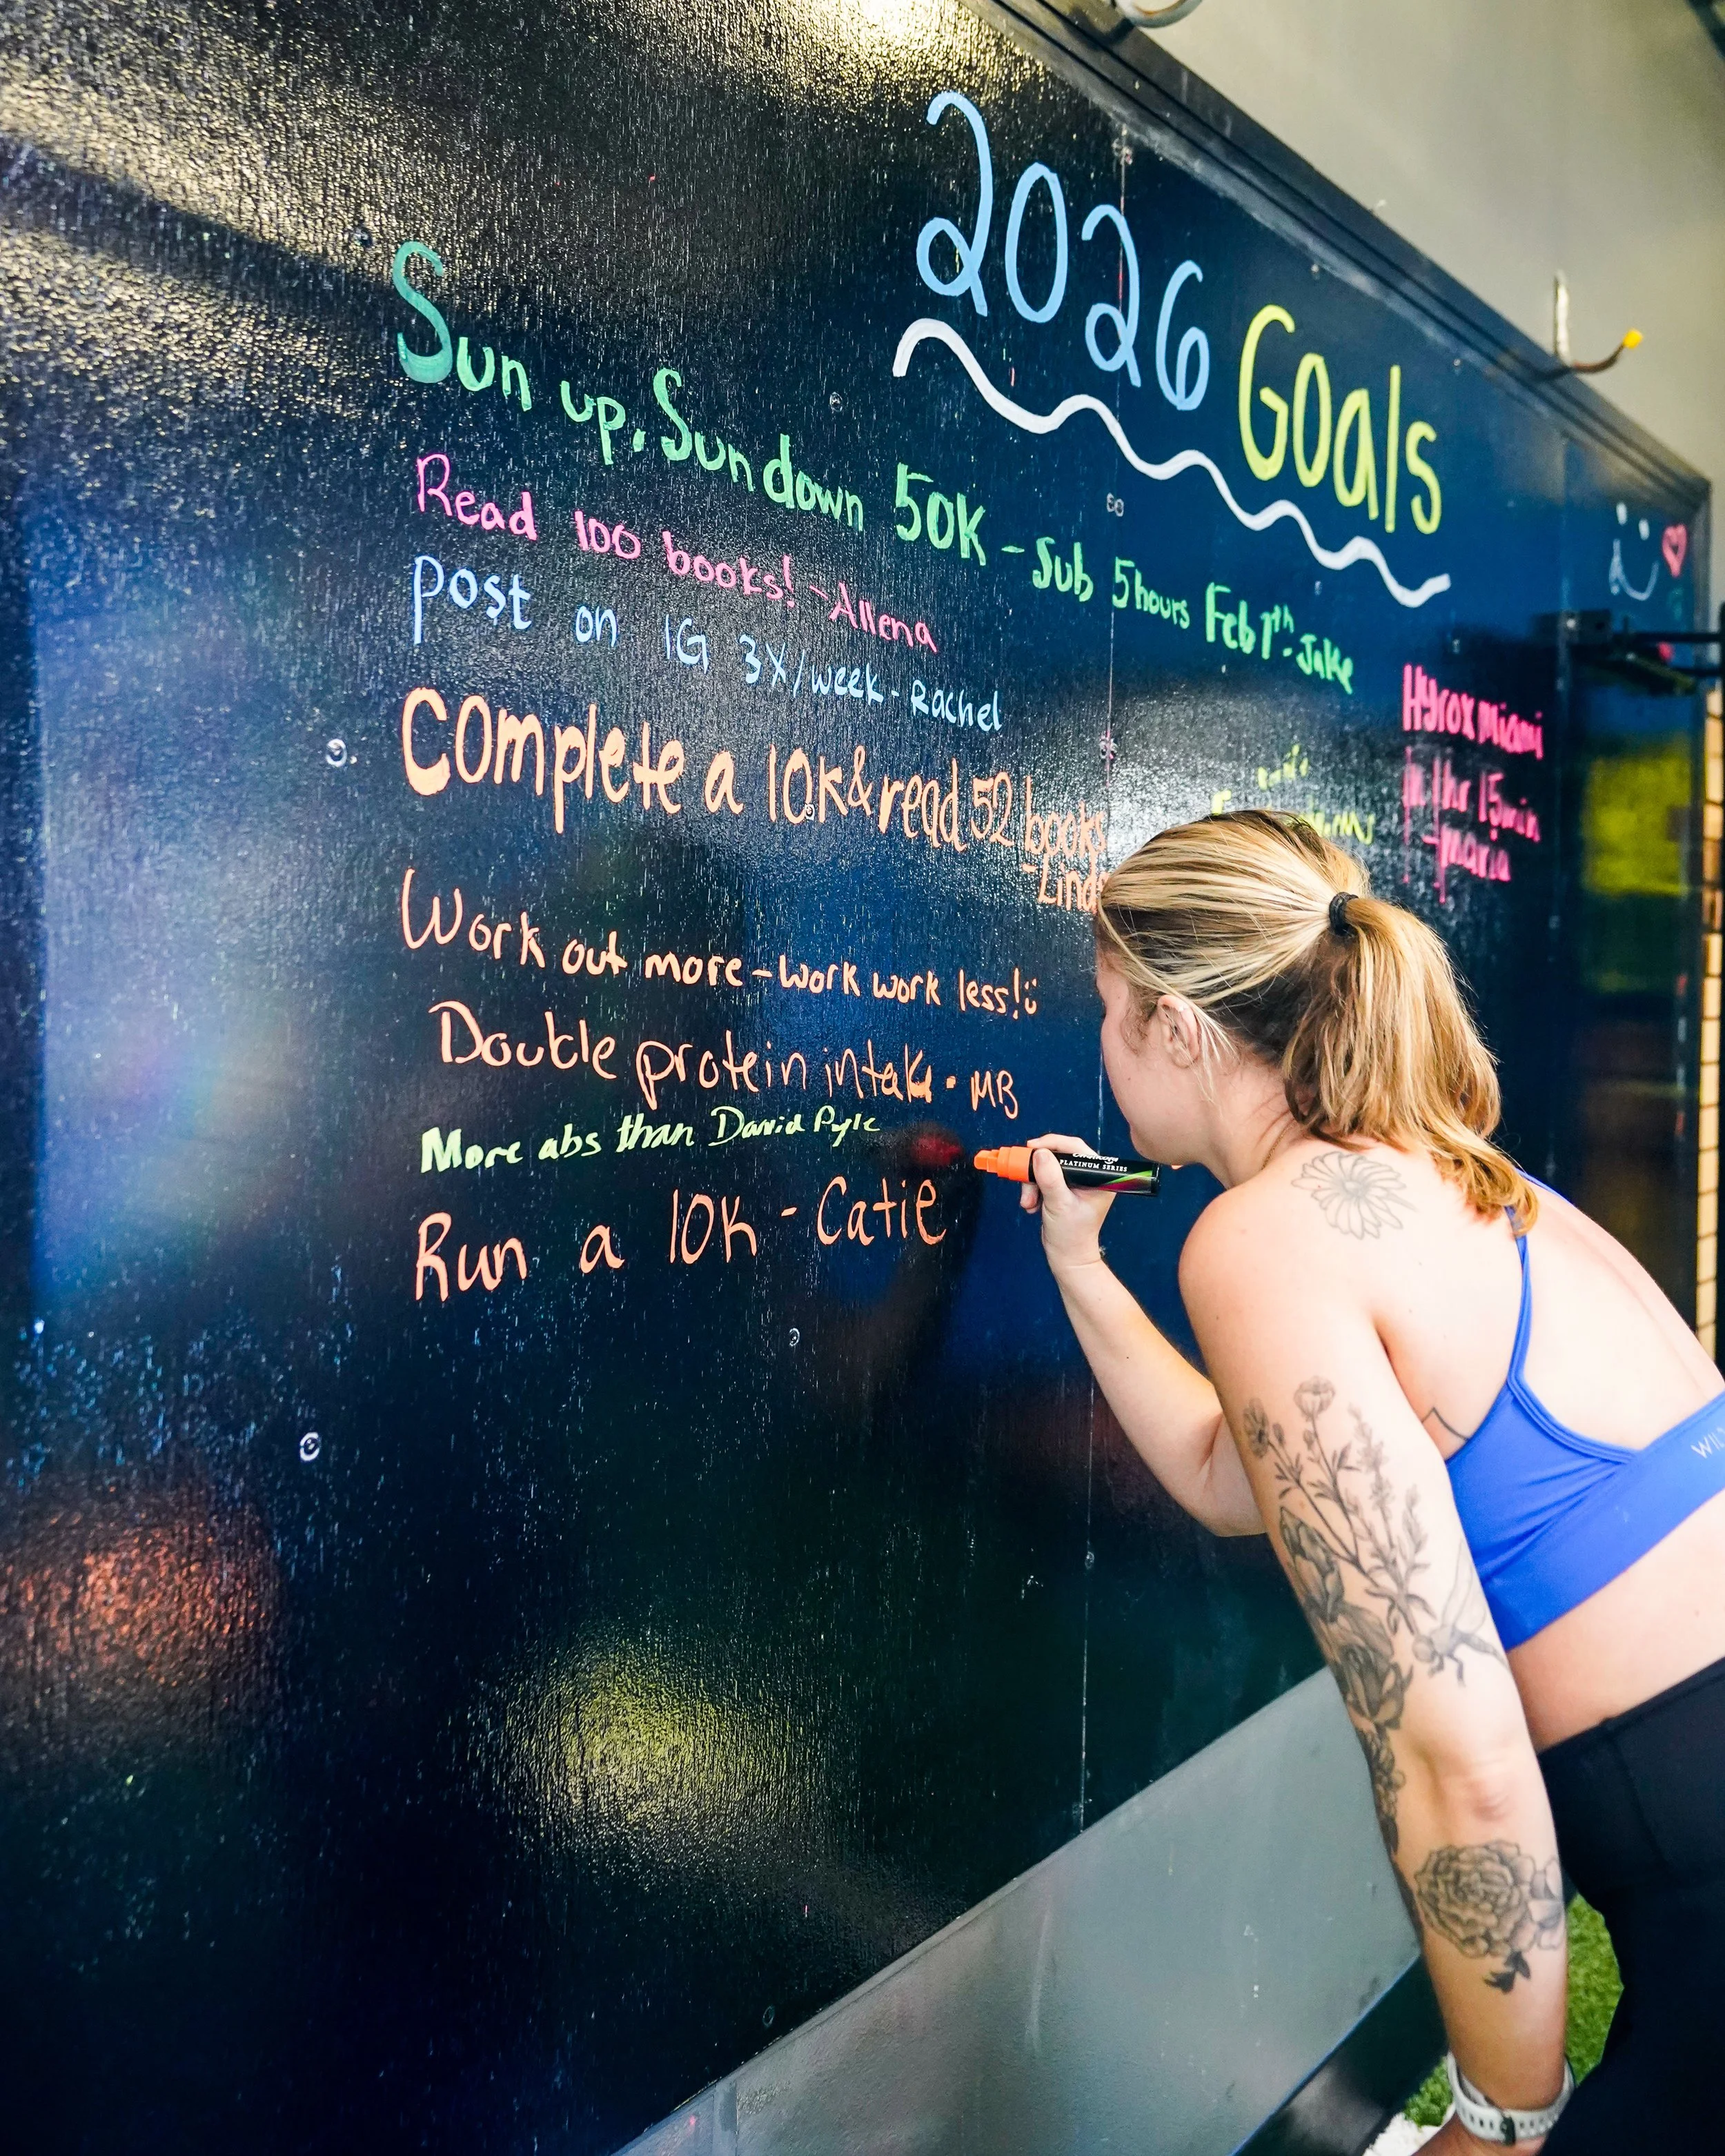 2026 Goals
Sun up, Sun down 50K - Sub 5 hours Feb 1th - Jake
Read 100 books! - Allena
post on IG 3X/week - Rachel
Complete a 10K & read 52 books
Work out more - work work less!
Double protein intake - MB
More abs than David Pyle
Run a 10K - Catie
Hyrox Miami
in 1hr 15min
-maria
PLATINUM SERIES